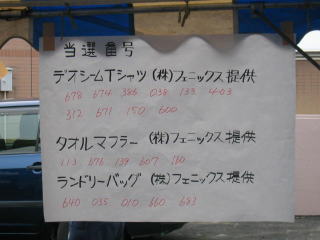 当選番号
デオシームTシャツ (株)フェニックス提供
678 674 386 038 133 403
312 671 150 600
タオルマフラー (株)フェニックス提供
113 676 139 607 160
ランドリーバッグ (株)フェニックス提供
640 035 010 660 683